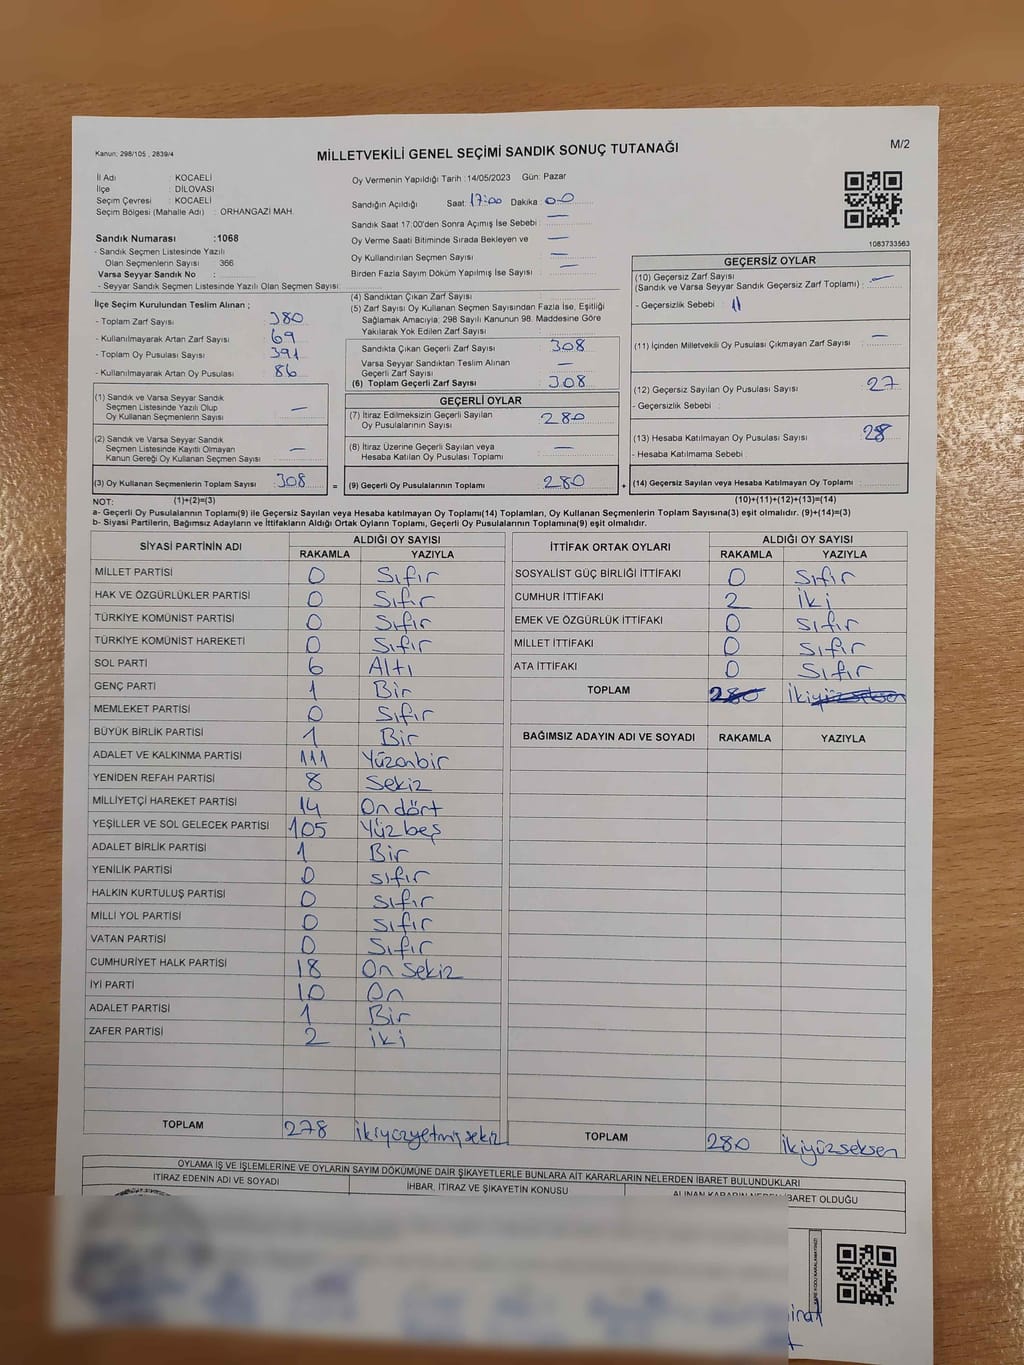 Kanun: 298/105 , 2839/4
MİLLETVEKİLİ GENEL SEÇİMİ SANDIK SONUÇ TUTANAĞI
M/2
İl Adı : KOCAELİ
İlçe : DİLOVASI
Seçim Çevresi : KOCAELİ
Seçim Bölgesi (Mahalle Adı) : ORHANGAZİ MAH.
Sandık Numarası :1068
- Sandık Seçmen Listesinde Yazılı
Olan Seçmenlerin Sayısı 366
Varsa Seyyar Sandık No :
- Seyyar Sandık Seçmen Listesinde Yazılı Olan Seçmen Sayısı:
Oy Vermenin Yapıldığı Tarih :14/05/2023 Gün: Pazar
Sandığın Açıldığı Saat: 17:00 Dakika: 00
Sandık Saat 17:00'den Sonra Açımış İse Sebebi : —
Oy Verme Saati Bitiminde Sırada Bekleyen ve —
Oy Kullandırılan Seçmen Sayısı —
Birden Fazla Sayım Döküm Yapılmış İse Sayısı —
1083733563
İlçe Seçim Kurulundan Teslim Alınan ;
- Toplam Zarf Sayısı 380
- Kullanılmayarak Artan Zarf Sayısı 69
- Toplam Oy Pusulası Sayısı 391
- Kullanılmayarak Artan Oy Pusulası 86
(1) Sandık ve Varsa Seyyar Sandık
Seçmen Listesinde Yazılı Olup —
Oy Kullanan Seçmenlerin Sayısı
(2) Sandık ve Varsa Seyyar Sandık
Seçmen Listesinde Kayıtlı Olmayan —
Kanun Gereği Oy Kullanan Seçmen Sayısı
(3) Oy Kullanan Seçmenlerin Toplam Sayısı 308 =
(4) Sandıktan Çıkan Zarf Sayısı
(5) Zarf Sayısı Oy Kullanan Seçmen Sayısından Fazla İse, Eşitliği
Sağlamak Amacıyla; 298 Sayılı Kanunun 98. Maddesine Göre
Yakılarak Yok Edilen Zarf Sayısı :
Sandıkta Çıkan Geçerli Zarf Sayısı 308
Varsa Seyyar Sandıktan Teslim Alınan —
Geçerli Zarf Sayısı
(6) Toplam Geçerli Zarf Sayısı : 308
GEÇERLİ OYLAR
(7) İtiraz Edilmeksizin Geçerli Sayılan
Oy Pusulalarının Sayısı : 280
(8) İtiraz Üzerine Geçerli Sayılan veya —
Hesaba Katılan Oy Pusulası Toplamı
(9) Geçerli Oy Pusulalarının Toplamı 280 +
GEÇERSİZ OYLAR
(10) Geçersiz Zarf Sayısı —
(Sandık ve Varsa Seyyar Sandık Geçersiz Zarf Toplamı) :
- Geçersizlik Sebebi :
(11) İçinden Milletvekili Oy Pusulası Çıkmayan Zarf Sayısı —
(12) Geçersiz Sayılan Oy Pusulası Sayısı 27
- Geçersizlik Sebebi
(13) Hesaba Katılmayan Oy Pusulası Sayısı 28
- Hesaba Katılmama Sebebi
(14) Geçersiz Sayılan veya Hesaba Katılmayan Oy Pusulası Toplamı :
NOT: (1)+(2)=(3)
(10)+(11)+(12)+(13)=(14)
a- Geçerli Oy Pusulalarının Toplamı(9) ile Geçersiz Sayılan veya Hesaba katılmayan Oy Toplamı(14) Toplamları, Oy Kullanan Seçmenlerin Toplam Sayısına(3) eşit olmalıdır. (9)+(14)=(3)
b- Siyasi Partilerin, Bağımsız Adayların ve İttifakların Aldığı Ortak Oyların Toplamı, Geçerli Oy Pusulalarının Toplamına(9) eşit olmalıdır.
SİYASİ PARTİNİN ADI ALDIĞI OY SAYISI
RAKAMLA YAZIYLA
MİLLET PARTİSİ 0 Sıfır
HAK VE ÖZGÜRLÜKLER PARTİSİ 0 Sıfır
TÜRKİYE KOMÜNİST PARTİSİ 0 Sıfır
TÜRKİYE KOMÜNİST HAREKETİ 0 Sıfır
SOL PARTİ 6 Altı
GENÇ PARTİ 1 Bir
MEMLEKET PARTİSİ 0 Sıfır
BÜYÜK BİRLİK PARTİSİ 1 Bir
ADALET VE KALKINMA PARTİSİ 111 Yüzonbir
YENİDEN REFAH PARTİSİ 8 Sekiz
MİLLİYETÇİ HAREKET PARTİSİ 14 On dört
YEŞİLLER VE SOL GELECEK PARTİSİ 105 Yüz beş
ADALET BİRLİK PARTİSİ 1 Bir
YENİLİK PARTİSİ 0 sıfır
HALKIN KURTULUŞ PARTİSİ 0 sıfır
MİLLİ YOL PARTİSİ 0 sıfır
VATAN PARTİSİ 0 Sıfır
CUMHURİYET HALK PARTİSİ 18 On Sekiz
İYİ PARTİ 10 On
ADALET PARTİSİ 1 Bir
ZAFER PARTİSİ 2 iki
TOPLAM 278 ikiyüzyetmişsekiz
İTTİFAK ORTAK OYLARI ALDIĞI OY SAYISI
RAKAMLA YAZIYLA
SOSYALİST GÜÇ BİRLİĞİ İTTİFAKI 0 Sıfır
CUMHUR İTTİFAKI 2 iki
EMEK VE ÖZGÜRLÜK İTTİFAKI 0 sıfır
MİLLET İTTİFAKI 0 sıfır
ATA İTTİFAKI 0 Sıfır
TOPLAM 280 ikiyüzseksen
BAĞIMSIZ ADAYIN ADI VE SOYADI RAKAMLA YAZIYLA
TOPLAM 280 ikiyüzseksen
OYLAMA İŞ VE İŞLEMLERİNE VE OYLARIN SAYIM DÖKÜMÜNE DAİR ŞİKAYETLERLE BUNLARA AİT KARARLARIN NELERDEN İBARET BULUNDUKLARI
İTİRAZ EDENİN ADI VE SOYADI
İHBAR, İTİRAZ VE ŞİKAYETİN KONUSU
ALINAN KARARIN NEDEN İBARET OLDUĞU